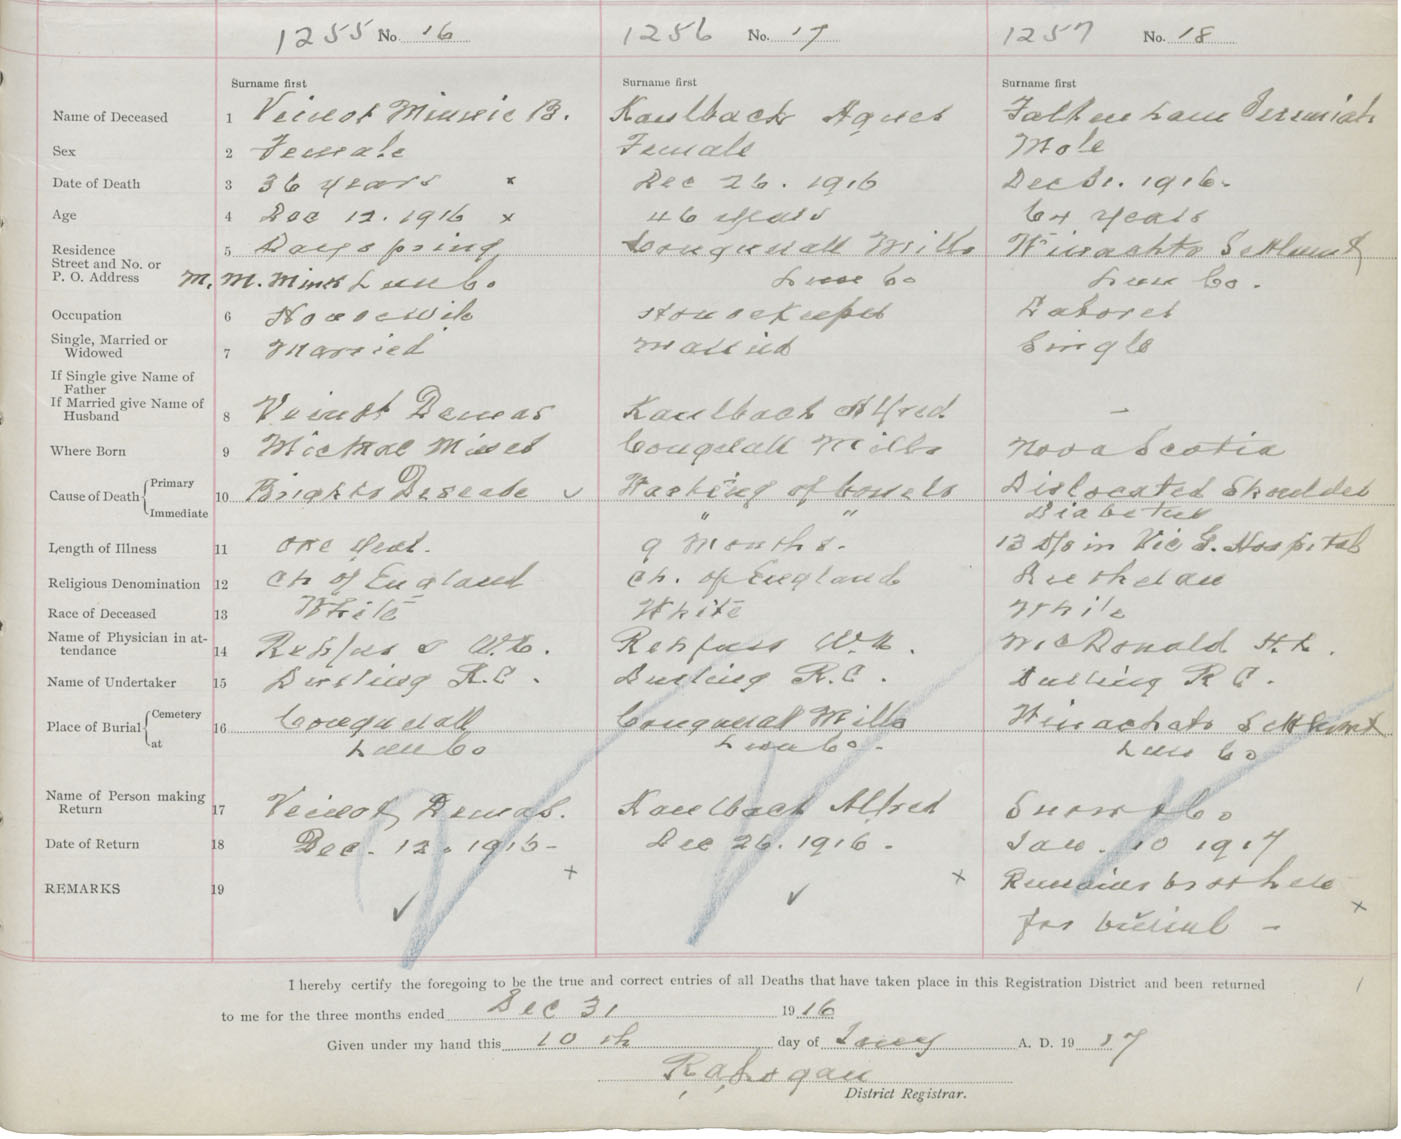 1255 No. 16 1256 No. 17 1257 No. 18
Surname first Surname first Surname first
Name of Deceased 1 Veinot Minnie B. Kaulback Agnes Falkenham Jeremiah
Sex 2 Female Female Male
Date of Death 3 36 years x Dec 26. 1916 Dec 31. 1916.
Age 4 Dec 12. 1916 x 46 years 64 years
Residence
Street and No. or
P. O. Address 5 Dayspring Conquerall Mills Winachts Settlment
M. M. Mines Lun Co. Lun Co Lun Co.
Occupation 6 Housewife Housekeeper Laborer
Single, Married or
Widowed 7 Married Married Single
If Single give Name of
Father
If Married give Name of
Husband 8 Veinot Demas Kaulback Alfred. –
Where Born 9 Michael Mines Conquerall Mills Nova Scotia
Cause of Death { Primary 10 Brights Desease ✓ Wasting of bowels Dislocated Shoulder
Immediate " " Diabetus
Length of Illness 11 one year. 9 Months. 13 dys in Vic G. Hospital
Religious Denomination 12 Ch of England Ch. of England Lutheran
Race of Deceased 13 White White White
Name of Physician in at-
tendance 14 Rehfuss W.N. Rehfuss W.N. McDonald H.K.
Name of Undertaker 15 Durling R.C. Durling R.C. Durling R C.
Place of Burial { Cemetery 16 Conquerall Conquerall Mills Winachats Settlmnt
at Lun Co Lun Co. Lun Co
Name of Person making
Return 17 Veinot Demas. Kaulback Alfred Snow & Co
Date of Return 18 Dec. 12. 1916 Dec 26. 1916. Jan. 10 1917
REMARKS 19 x ✓ x ✓ Remains brot here
for burial – x
I hereby certify the foregoing to be the true and correct entries of all Deaths that have taken place in this Registration District and been returned
to me for the three months ended Dec 31 1916
Given under my hand this 10 th day of Jany A. D. 1917
R. A. Logan
District Registrar.